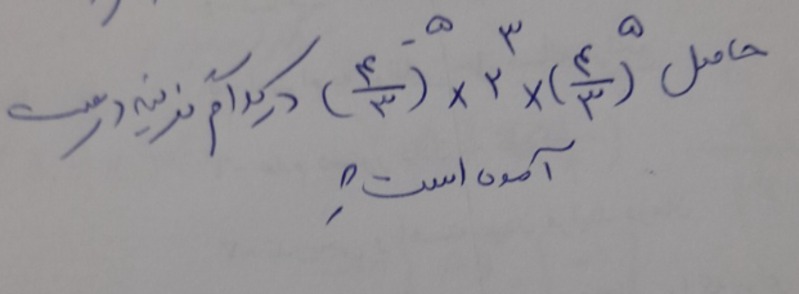 حاصل (۴/۳)^۵ × ۲^۳ × (۴/۳)^-۵ در کدام گزینه درست
آمده است؟